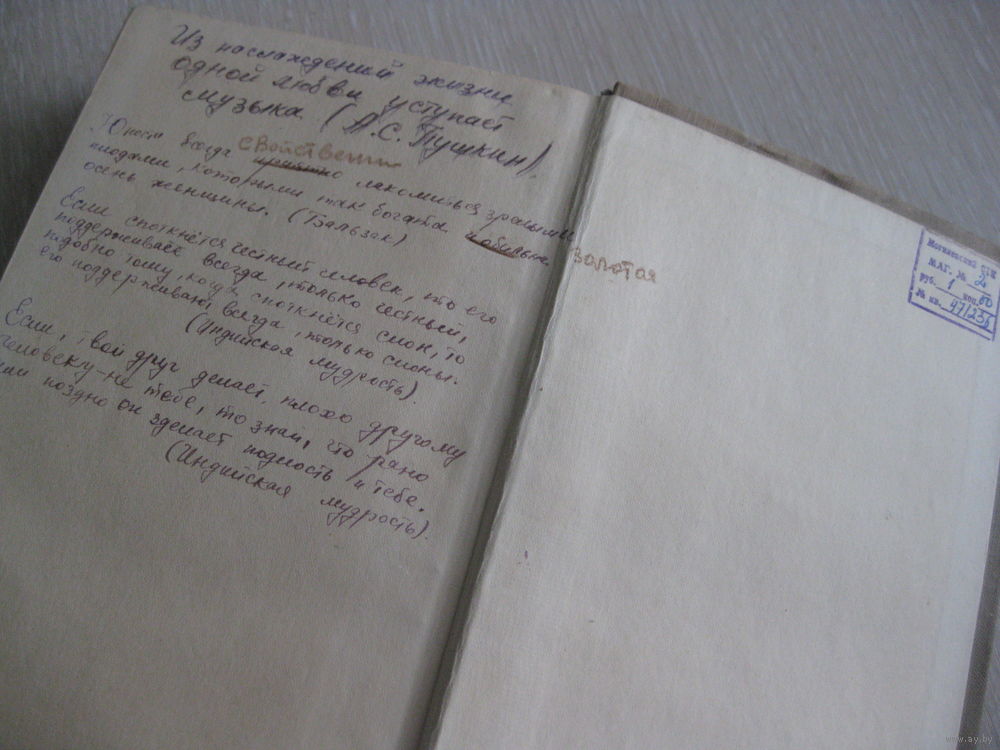 Из наслаждений жизни
одной любви уступает
музыка (А.С. Пушкин).
Юности всегда свойственно приятно лакомиться зрелыми
плодами, которыми так богата обильная золотая
осень женщины. (Бальзак)
Если споткнётся честный человек, то его
поддерживает всегда, только честный,
подобно тому, когда споткнётся слон, то
его поддерживают всегда, только слоны.
(Индийская мудрость).
Если, твой друг делает, плохо другому
человеку-не тебе, то знай, что рано
или поздно он зделает подлость и тебе.
(Индийская мудрость).
Могилевский
МАГ. № 2
руб. 1 коп. 60
№ кв. 47/236
www.ay.by